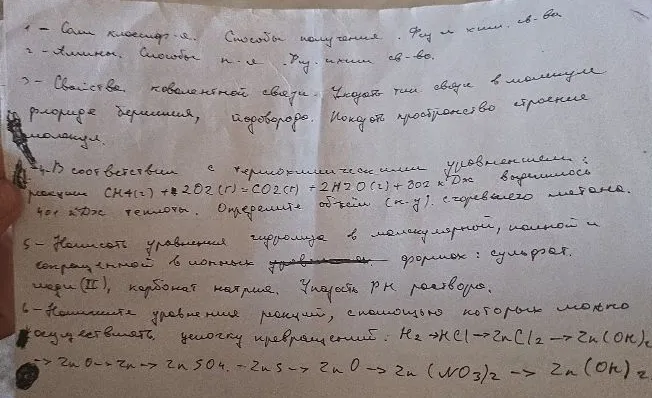 1 - Соли классиф-я. Способы получения. Физ и хим. св-ва
2 - Амины. Способы п-я. Физ. и хим св-ва.
3 - Свойства ковалентной связи. Указать тип связи в молекуле
флорида бериллия, йодоводорода. Показать пространство строение
молекул.
4. В соответствии с термохимическими уравнением:
реакции CH4(г) + 2O2(г) = CO2(г) + 2H2O(г) + 802 кДж выделилось
401 кДж теплоты. Определите объём (н.у) сгоревшего метана.
5 - Написать уравнения гидролиза в молекулярной, полной и
сокращенной в ионных формах: сульфат.
меди (II), карбонат натрия. Указать PH раствора.
6 - Напишите уравнения реакций, с помощью которых можно
осуществлять цепочку превращений: H2→HCl→ZnCl2→Zn(OH)2
→ZnO→Zn→ZnSO4.-ZnS→ZnO→Zn(NO3)2→Zn(OH)2